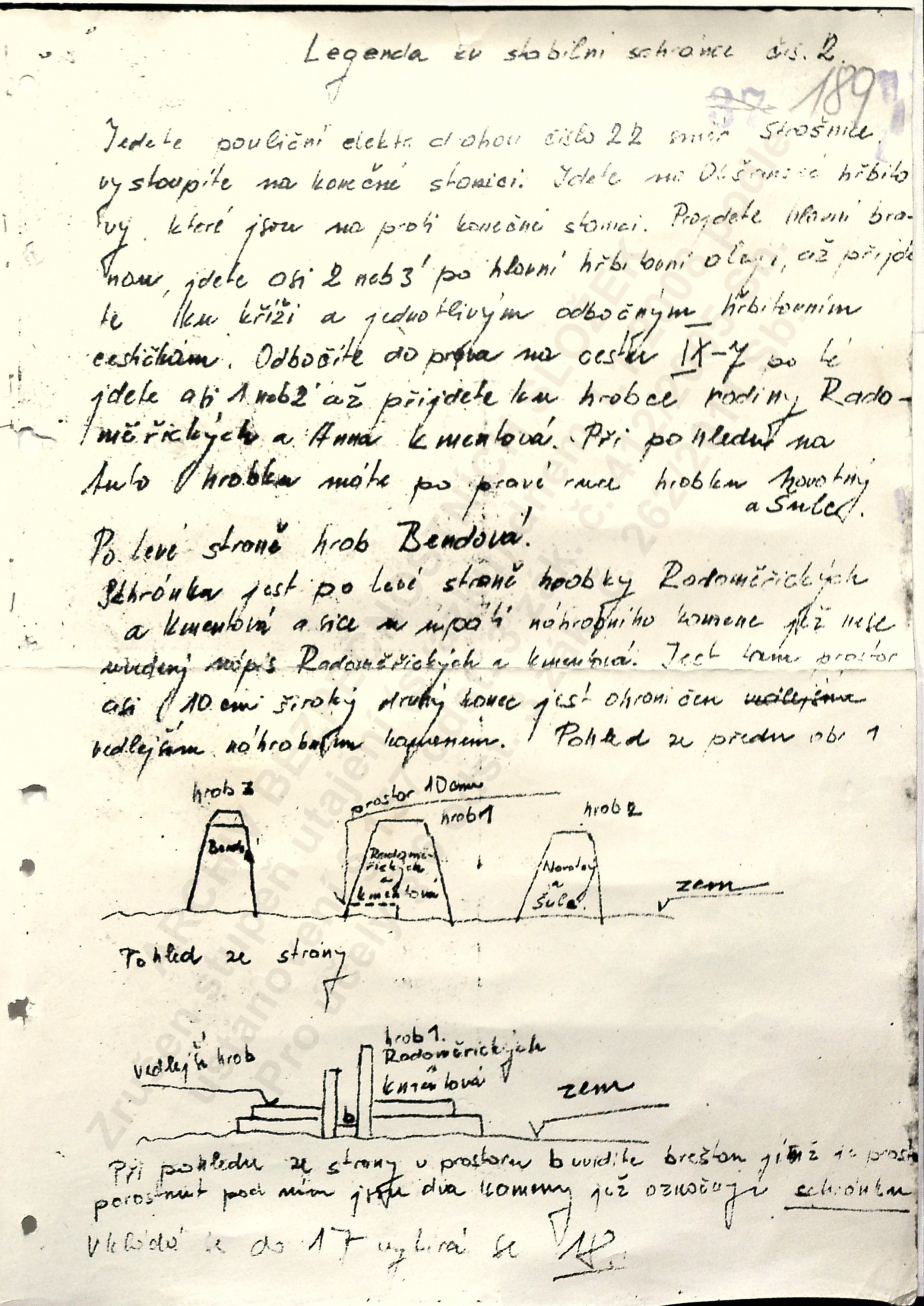 Legenda ku stabilní schránce čís. 2.
37 189
Jedete pouliční elektr. drahou číslo 22 směr Strašnice,
vystoupíte na konečné stanici. Jdete na Olšanské hřbito
vy, které jsou na proti konečné stanici. Projdete hlavní bra-
nou, jdete asi 2 neb 3' po hlavní hřbitovní aleji, až přijde
te ku kříži a jednotlivým odbočným hřbitovním
cestičkám. Odbočíte do prava na cestu IX-7 po té
jdete asi 1 neb 2' až přijdete ku hrobce rodiny Rado-
měřických a Anna Kmentová. Při pohledu na
tuto hrobku máte po pravé ruce hrobku Novotný
a Šulc.
Po levé straně hrob Bendová.
Schránka jest po levé straně hrobky Radoměřických
a Kmentová a sice u úpatí náhrobního kamene jež nese
uvedený nápis Radoměřických a Kmentová. Jest tam prostor
asi 10 cmi široký druhý konec jest ohraničen vedlejším
vedlejším náhrobním kamenem. Pohled ze předu obr 1
hrob 3
prostor 10cm
hrob 1
hrob 2
Radomě-
řických
a
Kmentová
Novotný
a
Šulc
zem
Pohled ze strany
vedlejší hrob
hrob 1.
Radoměřických
Kmentová
b
zem
Při pohledu ze strany v prostoru b uvidíte brečťan jímž je prost
porostnut pod ním jsou dva kameny jež označují schránku
Vkládá se do 17 vybírá se 18.